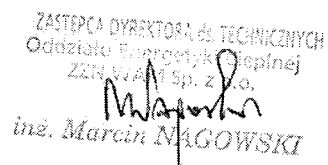 ZASTĘPCA DYREKTORA ds. TECHNICZNYCH
Oddziału Energetyki Cieplnej
Sp. z o.o.
inż. Marcin NAGOWSKI